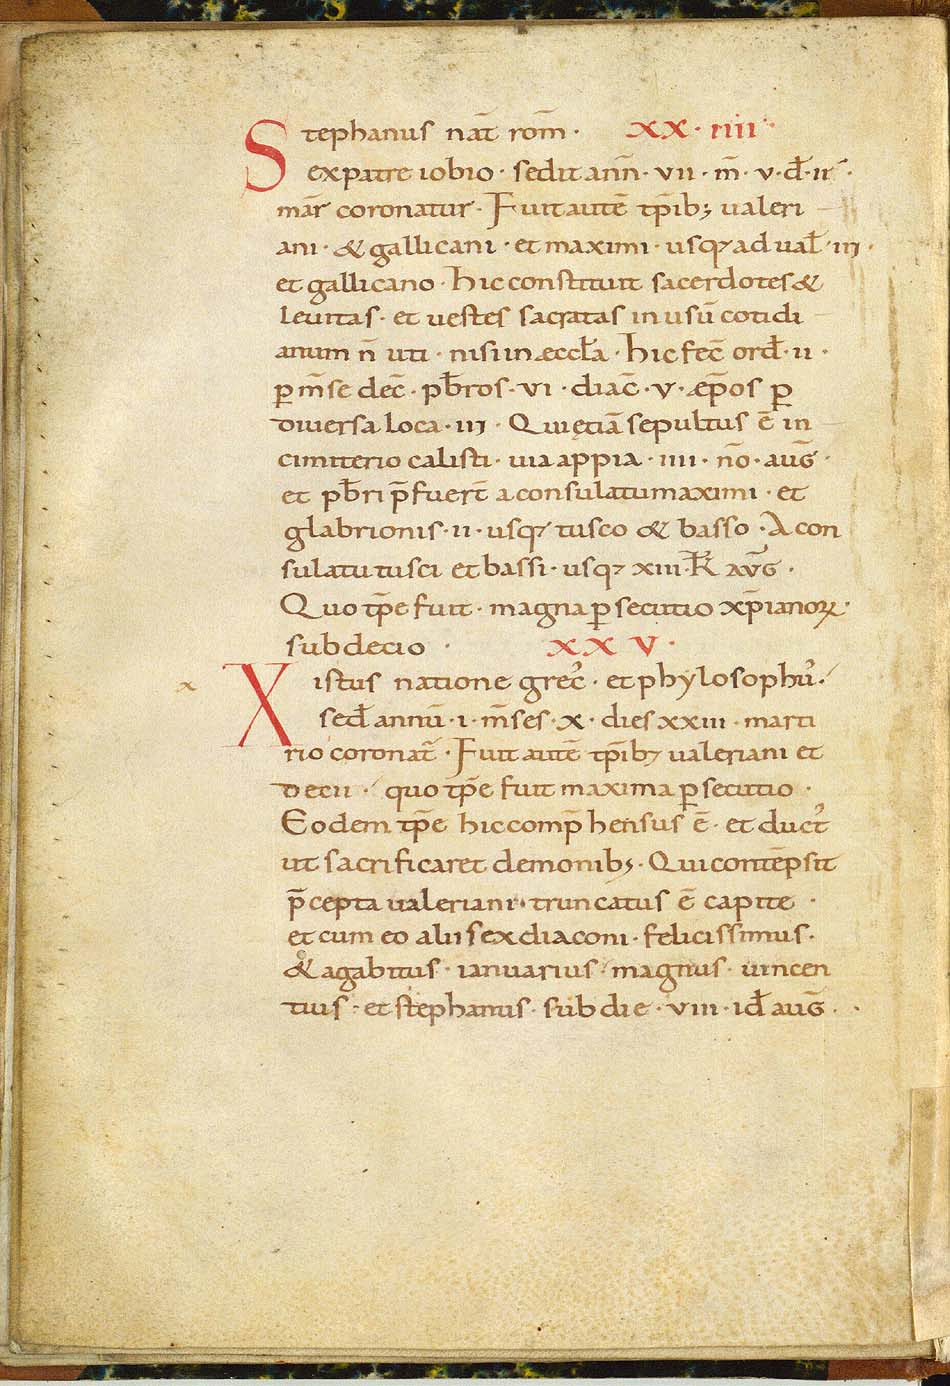 Stephanus nat̄ rom̄ · XX · IIII ·
ex patre iobio · sedit ann̄ · vii · m̄ · v · d̄ · ii ·
mār coronatur · Fuit autē tp̄ib; ualeri
ani · & gallicani · et maximi · usq; ad ual̄ · iii ·
et gallicano · hic constituit sacerdotes &
leuitas · et uestes sacratas in usū cotidi
anum n̄ uti · nisi in æccl̄a · hic fec̄ ord̄ · ii ·
ꝑ m̄se dec̄ · pb̄ros · vi · diac̄ · v · æp̄os ꝑ
diuersa loca · iii · Qui ętiā sepultus ē in
cimiterio calisti · uia appia · iiii · nō · auḡ ·
et pb̄ri p̄fuer̄t a consulatu maximi · et
glabrionis · ii · usq; tusco & basso · A con
sulatu tusci et bassi · usq; xiii · K̄ AVḠ ·
Quo tp̄e fuit · magna ꝑsecutio xp̄ianoꝝ ·
sub decio · XXV ·
x Xistus natione grec᾽ · et phylosophu᾽ ·
sed̄ annū · i · m̄ses · x · dies xxiii · marti
rio coronat̄ · Fuit autē tp̄ib; ualeriani et
decii · quo tp̄e fuit maxima ꝑsecutio ·
Eodem tp̄e hic comp̄hensus ē · et duct᾽
ut sacrificaret demonib; · Qui contēpsit
p̄cepta ualeriani · truncatus ē capite ·
et cum eo alii sex diaconi · felicissimus ·
& agabitus · ianuarius · magnus · uincen
tius · et stephanus · sub die · viii · id̄ auḡ ·